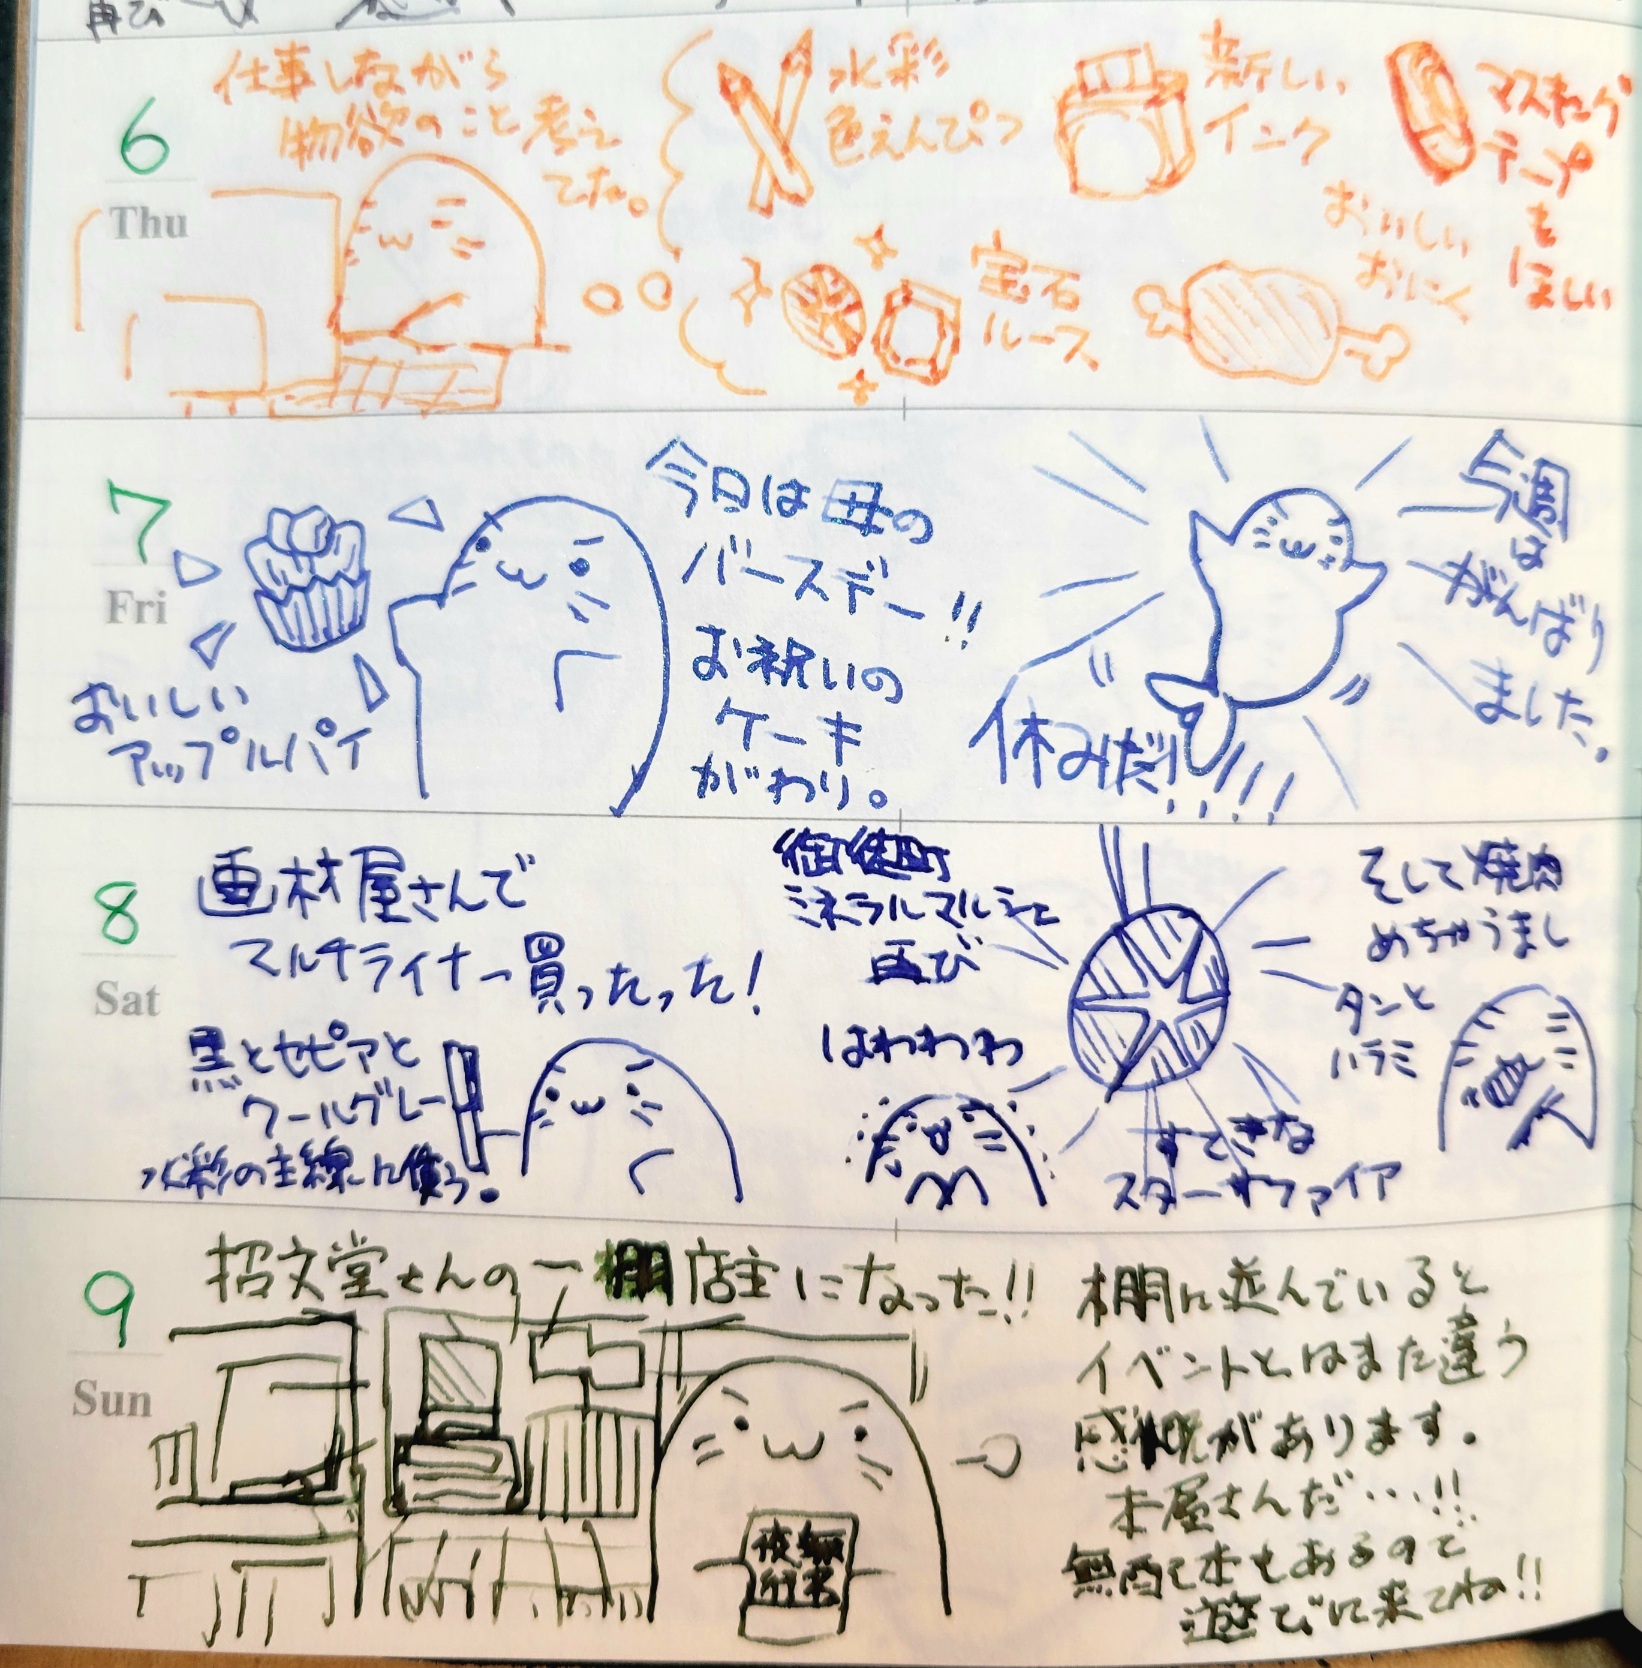 再び
6
Thu
仕事しながら
物欲のこと考え
てた。
水彩
色えんぴつ
新しい
インク
マスキング
テープ
も
ほしい
宝石
ルース
おいしい
おにく
7
Fri
おいしい
アップルパイ
今日は母の
バースデー!!
お祝いの
ケーキ
がわり。
休みだ!!!!!
今週
は
がんばり
ました。
8
Sat
画材屋さんで
マルチライナー買ったった!
黒とセピアと
クールグレー
水彩の主線に使う。
御徒町
ミネラルマルシェ
再び
はわわわ
すてきな
スターサファイア
そして焼肉
めちゃうまし
タンと
ハラミ
9
Sun
招文堂さんの一棚店主になった!!
棚に並んでいると
イベントとはまた違う
感慨があります。
本屋さんだ…!!
無配本もあるので
遊びに来てね!!